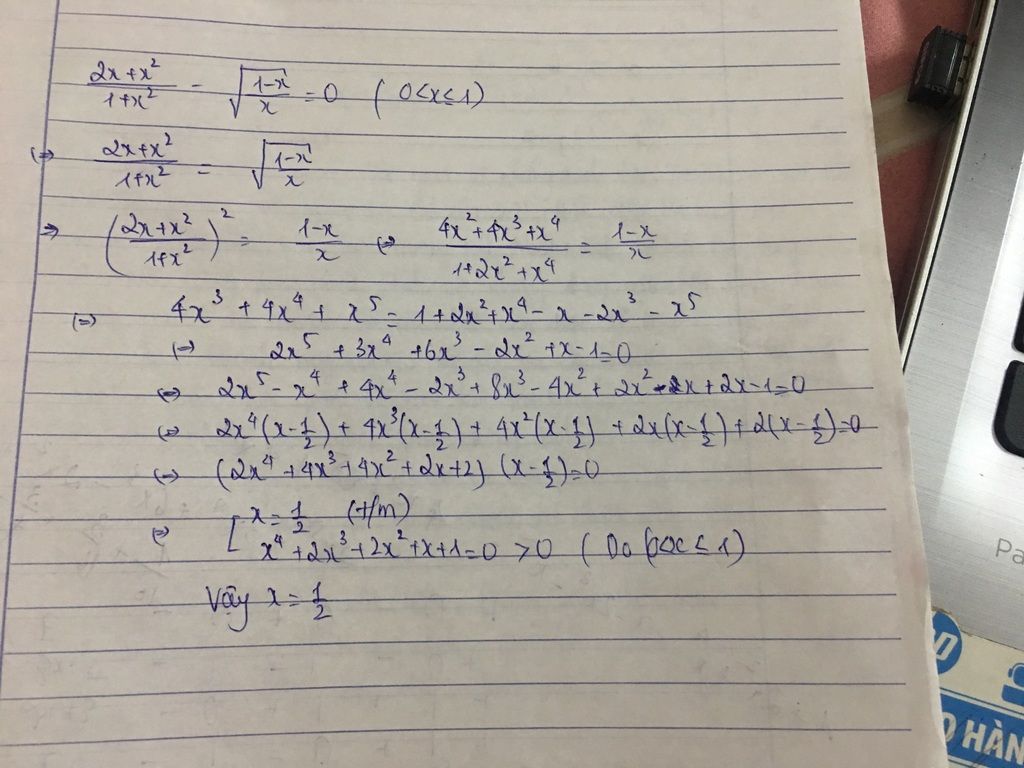 (2x+x²)/(1+x²) - √((1-x)/x) = 0 ( 0<x≤1)
(=> (2x+x²)/(1+x²) = √((1-x)/x)
=> ((2x+x²)/(1+x²))² = (1-x)/x (=> (4x²+4x³+x⁴)/(1+2x²+x⁴) = (1-x)/x
(=) 4x³ + 4x⁴ + x⁵ = 1+2x²+x⁴ - x - 2x³ - x⁵
(=> 2x⁵ + 3x⁴ + 6x³ - 2x² + x - 1 = 0
(=> 2x⁵ - x⁴ + 4x⁴ - 2x³ + 8x³ - 4x² + 2x² - x + 2x - 1 = 0
(=> 2x⁴(x-1/2) + 4x³(x-1/2) + 4x²(x-1/2) + 2x(x-1/2) + 2(x-1/2) = 0
(=> (2x⁴ + 4x³ + 4x² + 2x + 2) (x-1/2) = 0
(=> [ x = 1/2 (t/m)
x⁴ + 2x³ + 2x² + x + 1 = 0 > 0 ( Do 0<x ≤ 1)
Vậy x = 1/2
Pa
O HÀN